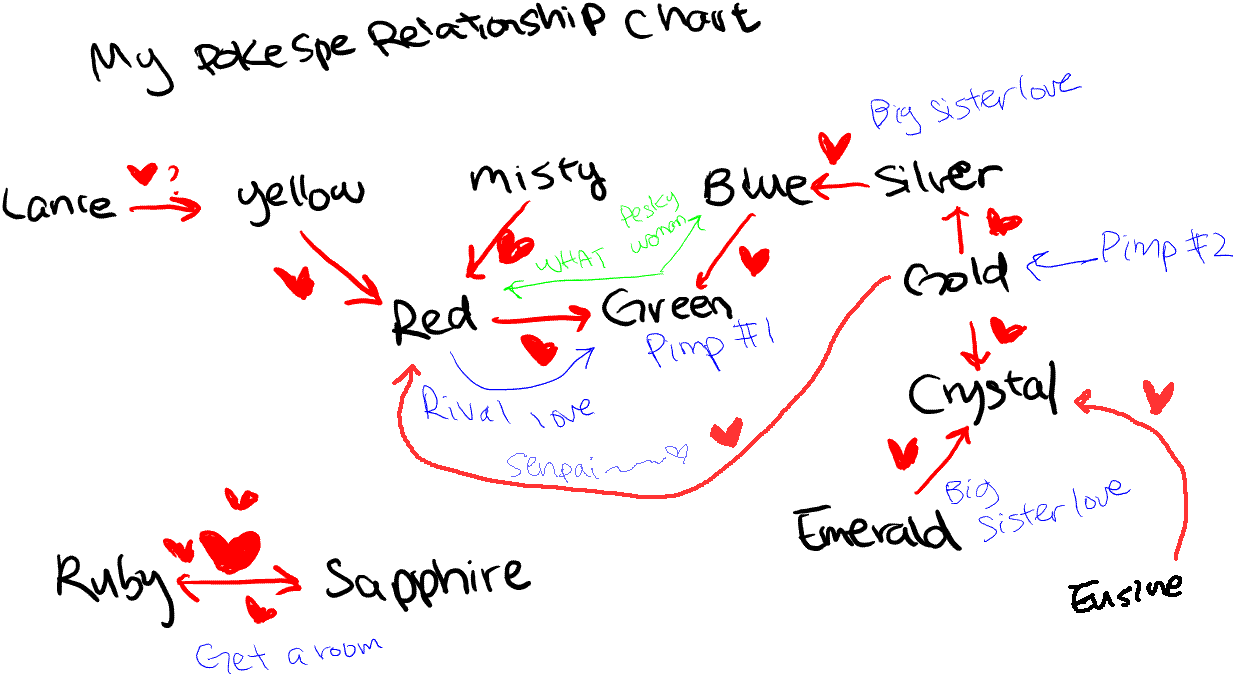 My Pokespe Relationship Chart
Big sister love
Lance
?
yellow
misty
Blue
Silver
Pesky
woman
WHAT
Gold
Pimp #2
Red
Green
Pimp #1
Rival love
Crystal
Senpai~~♡
Emerald
Big
Sister love
Ruby
Sapphire
Eusine
Get a room